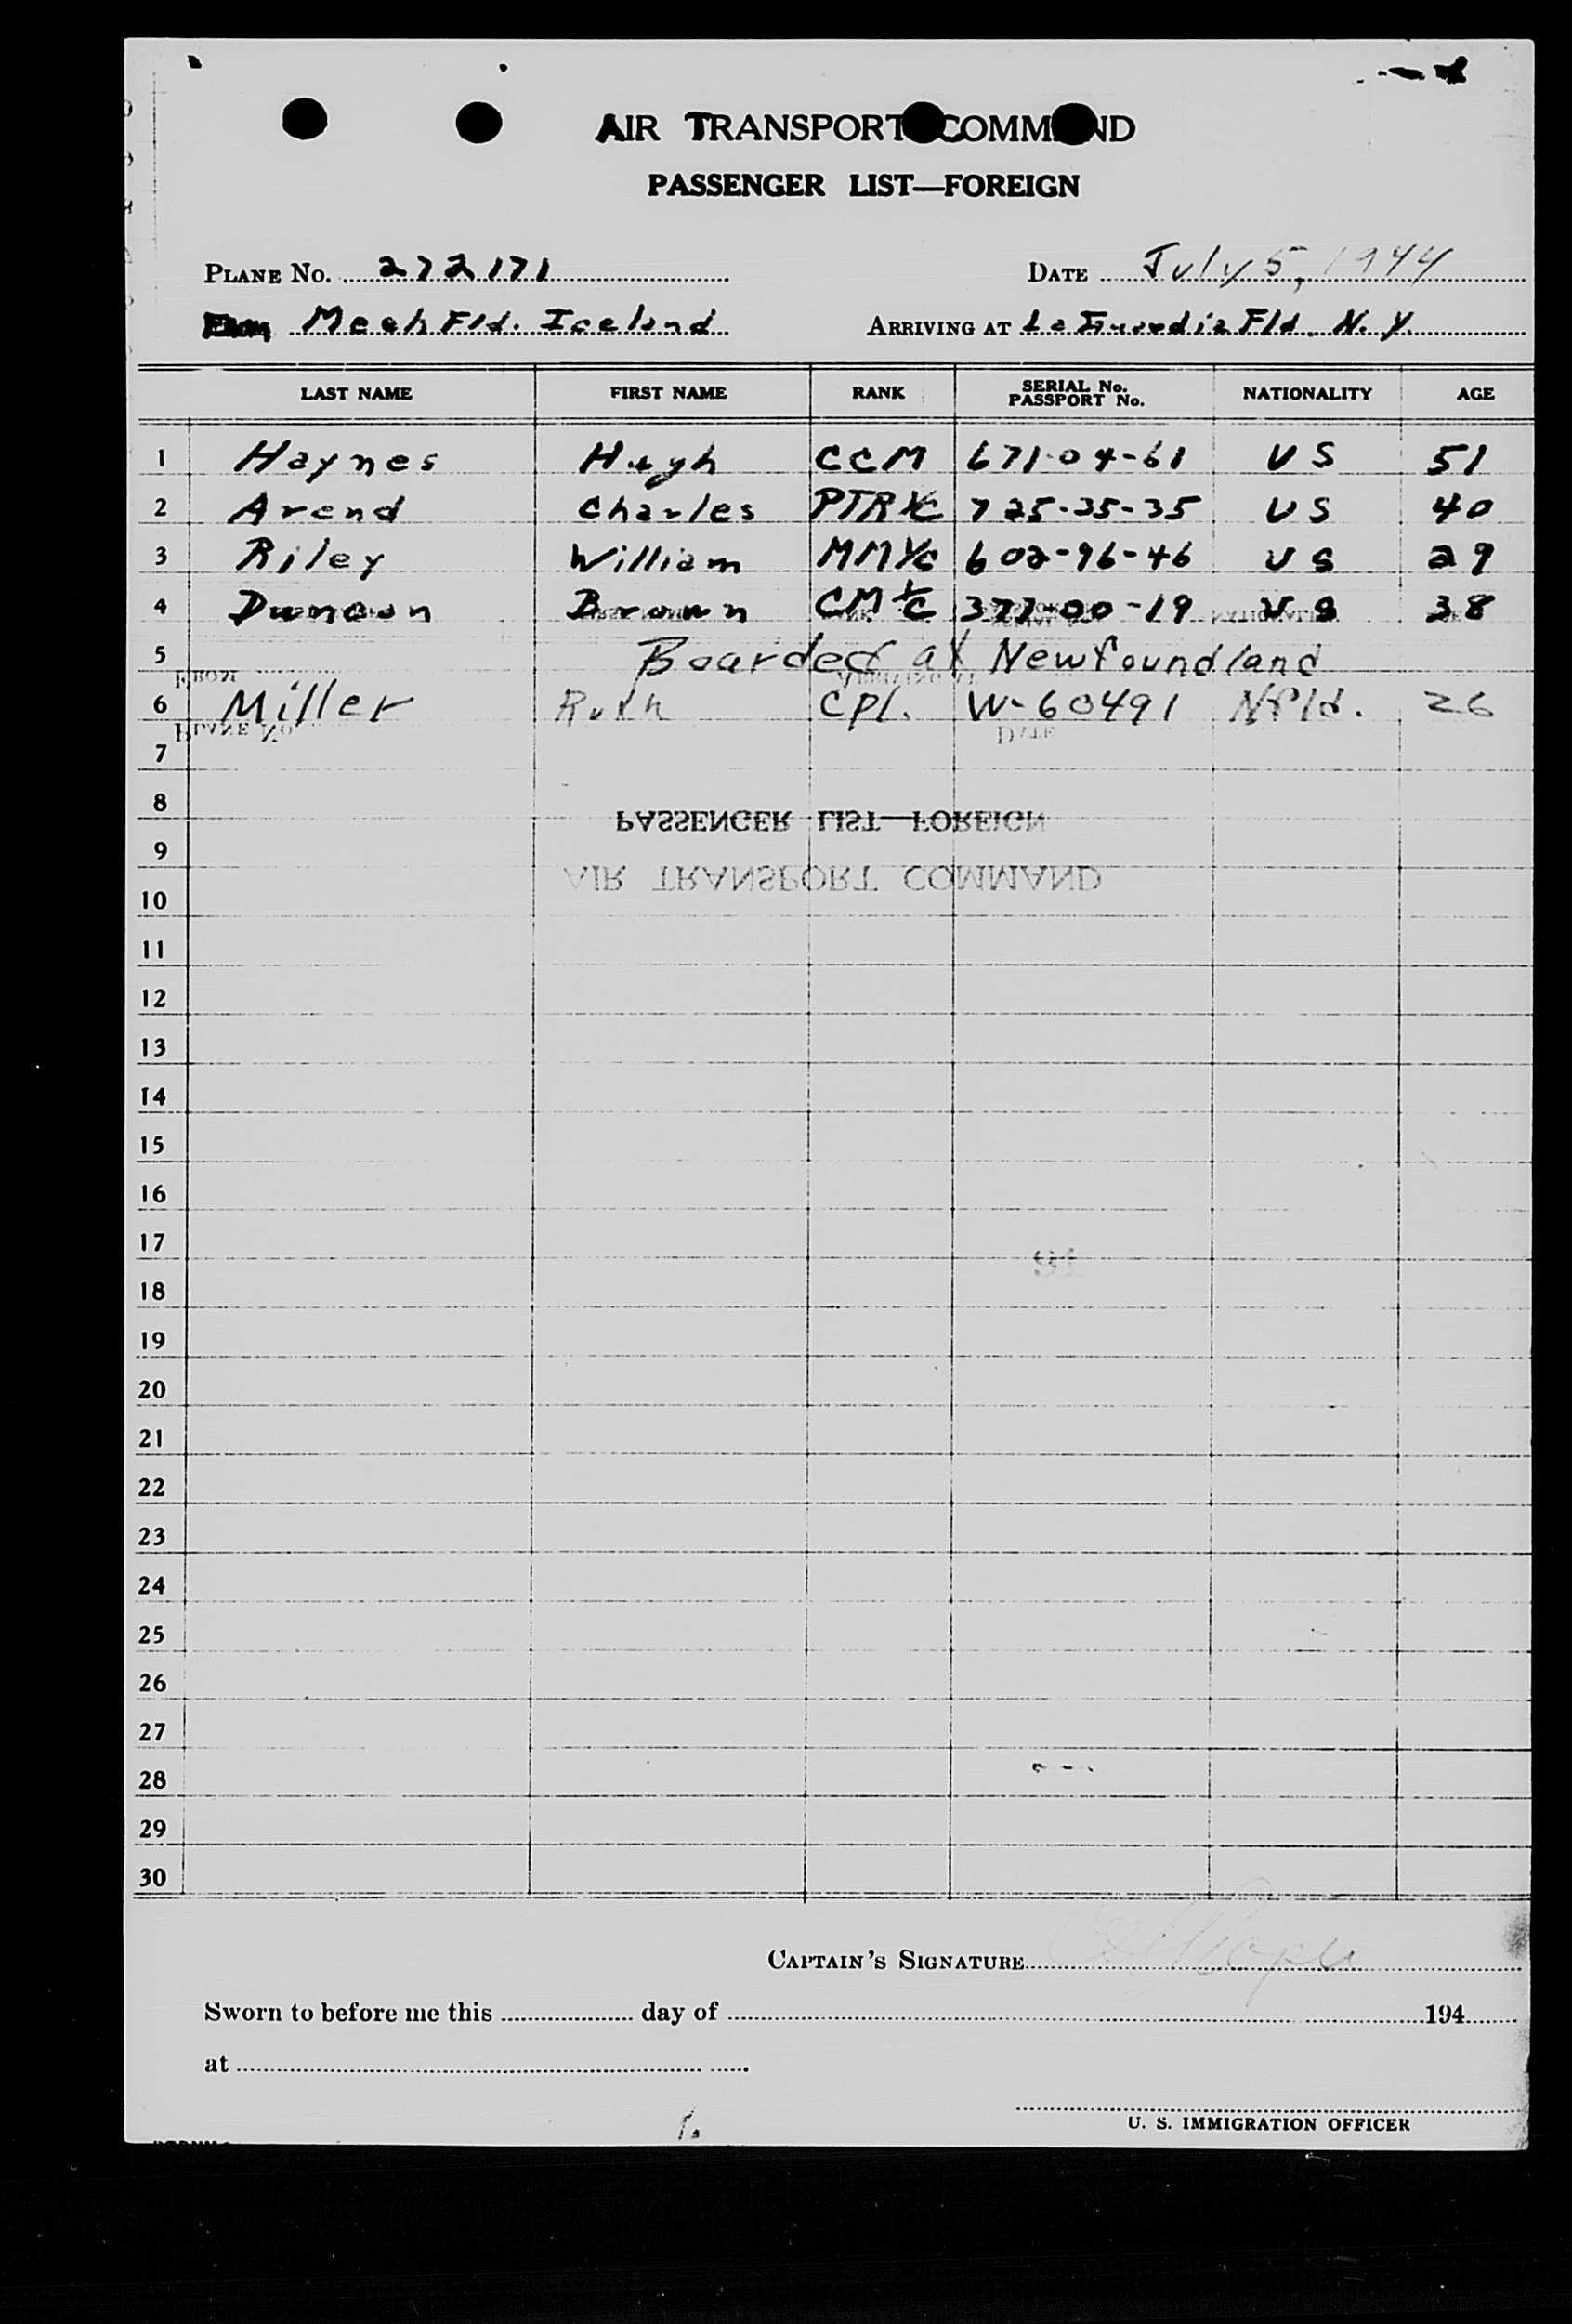 AIR TRANSPORT COMMAND
PASSENGER LIST—FOREIGN
PLANE No. 272171 DATE July 5, 1944
From Meeh Fld. Iceland ARRIVING AT La Guardia Fld. N.Y.
LAST NAME FIRST NAME RANK SERIAL No. PASSPORT No. NATIONALITY AGE
1 Haynes Hugh CCM 671-04-61 US 51
2 Arend Charles PTR 1/C 725-35-35 US 40
3 Riley William MM 1/C 602-96-46 US 29
4 Duncan Brown CM 1/C 377-00-19 US 38
5 Boarded at Newfoundland
6 Miller Ruth Cpl. W-60491 Nfld. 26
7
8
PASSENGER LIST—FOREIGN
9
AIR TRANSPORT COMMAND
10
11
12
13
14
15
16
17
18
19
20
21
22
23
24
25
26
27
28
29
30
CAPTAIN'S SIGNATURE
Sworn to before me this day of 194
at
U. S. IMMIGRATION OFFICER